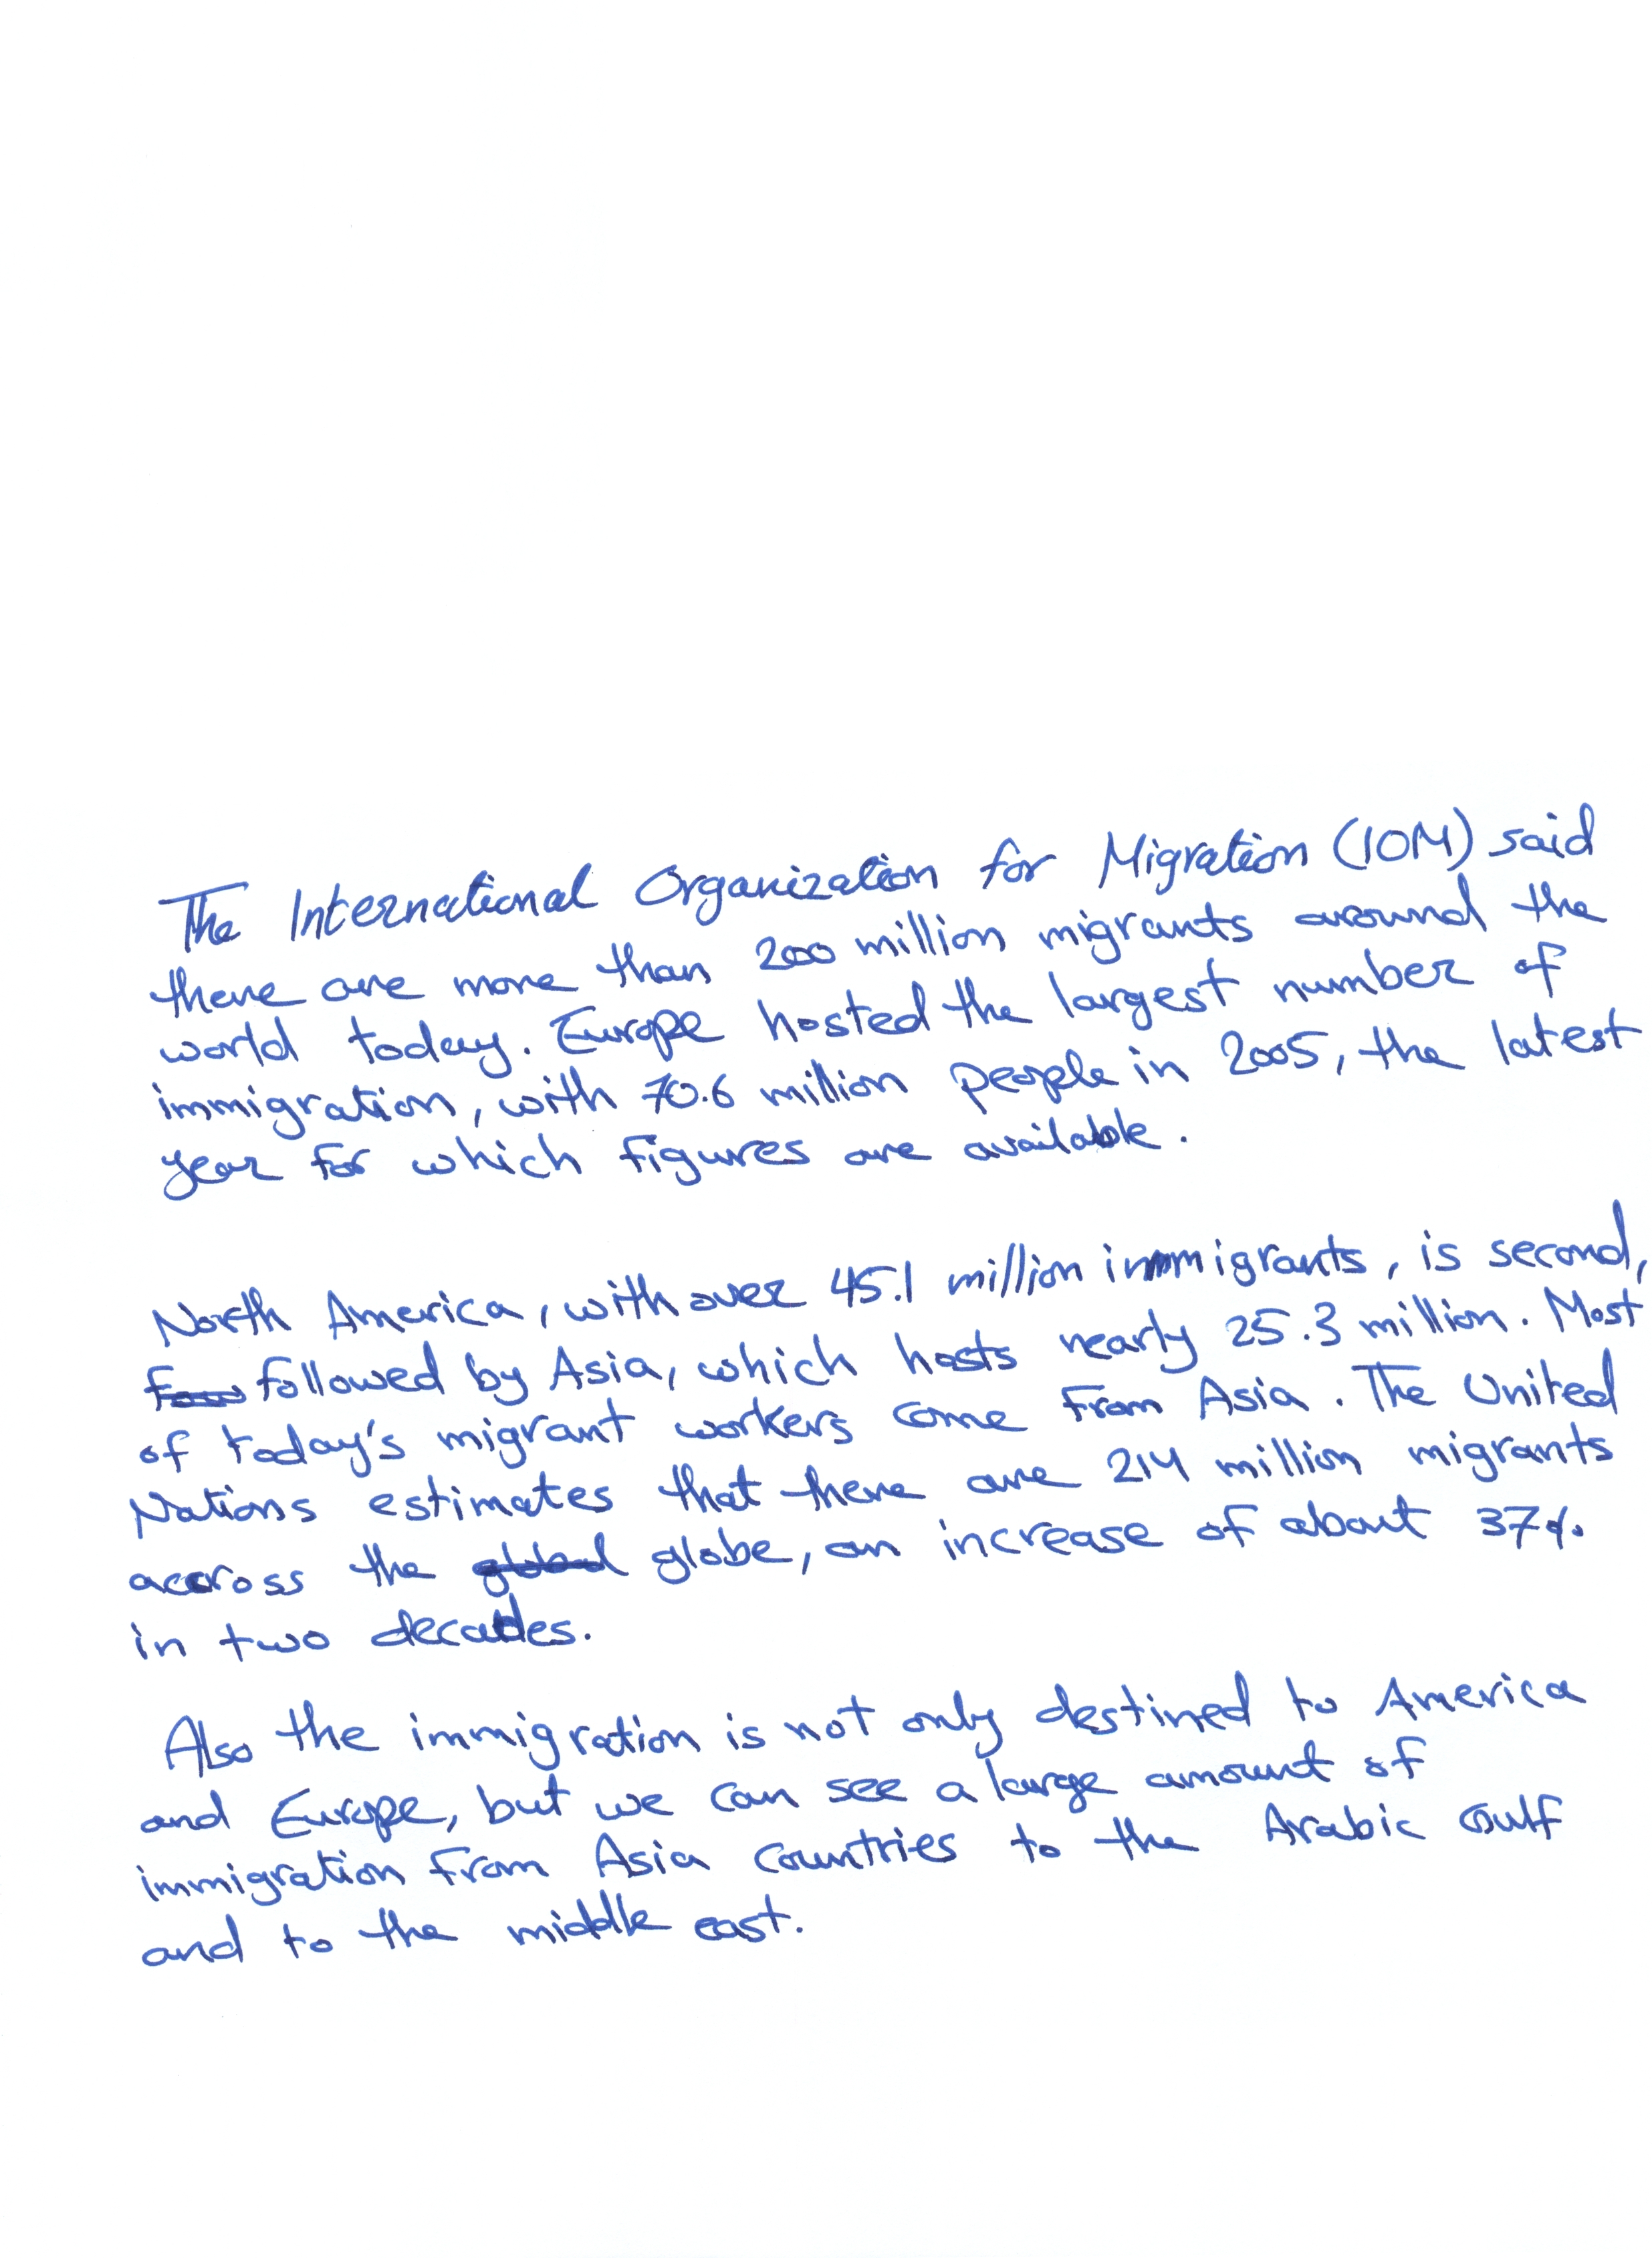 The International Organization for Migration (IOM) said
there are more than 200 million migrants around the
world today. Europe hosted the largest number of
immigration, with 70.6 million people in 2005, the latest
year for which figures are available.
North America, with over 45.1 million immigrants, is second,
followed by Asia, which hosts nearly 25.3 million. Most
of today's migrant workers come from Asia. The United
Nations estimates that there are 214 million migrants
accross the globe, an increase of about 37%
in two decades.
Also the immigration is not only destined to America
and Europe, but we can see a large amount of
immigration from Asia countries to the Arabic Gulf
and to the middle east.